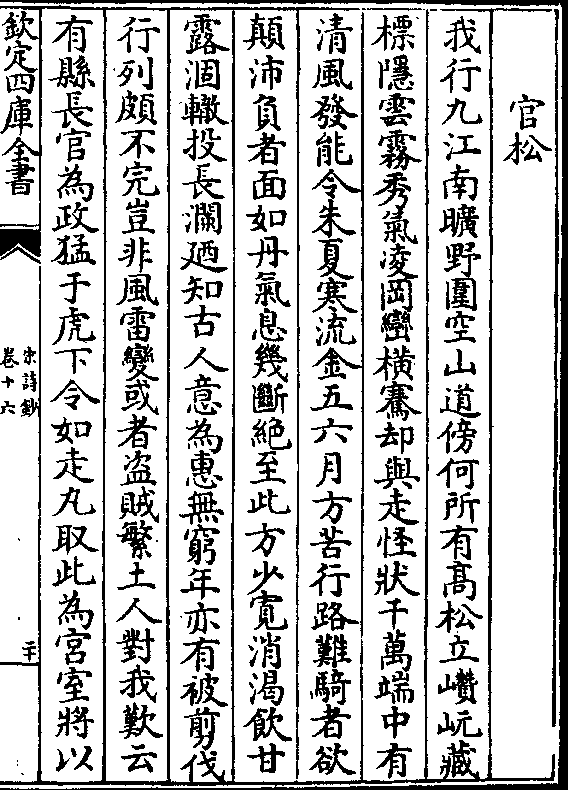 官松
我行九江南曠野圍空山道傍何所有髙松立巑岏藏
標隱雲霧秀氣淩岡巒橫騫却與走怪狀千萬端中有
清風發能令朱夏寒流金五六月方苦行路難騎者欲
顛沛負者面如丹氣息幾斷絕至此方少寛消渴飲甘
露涸轍投長瀾廼知古人意為惠無窮年亦有被剪伐
行列頗不完豈非風雷變或者盗賊繁土人對我歎云
有縣長官為政猛于虎下令如走丸取此為宮室將以
欽定四庫全書
宋詩鈔
卷十六
二十